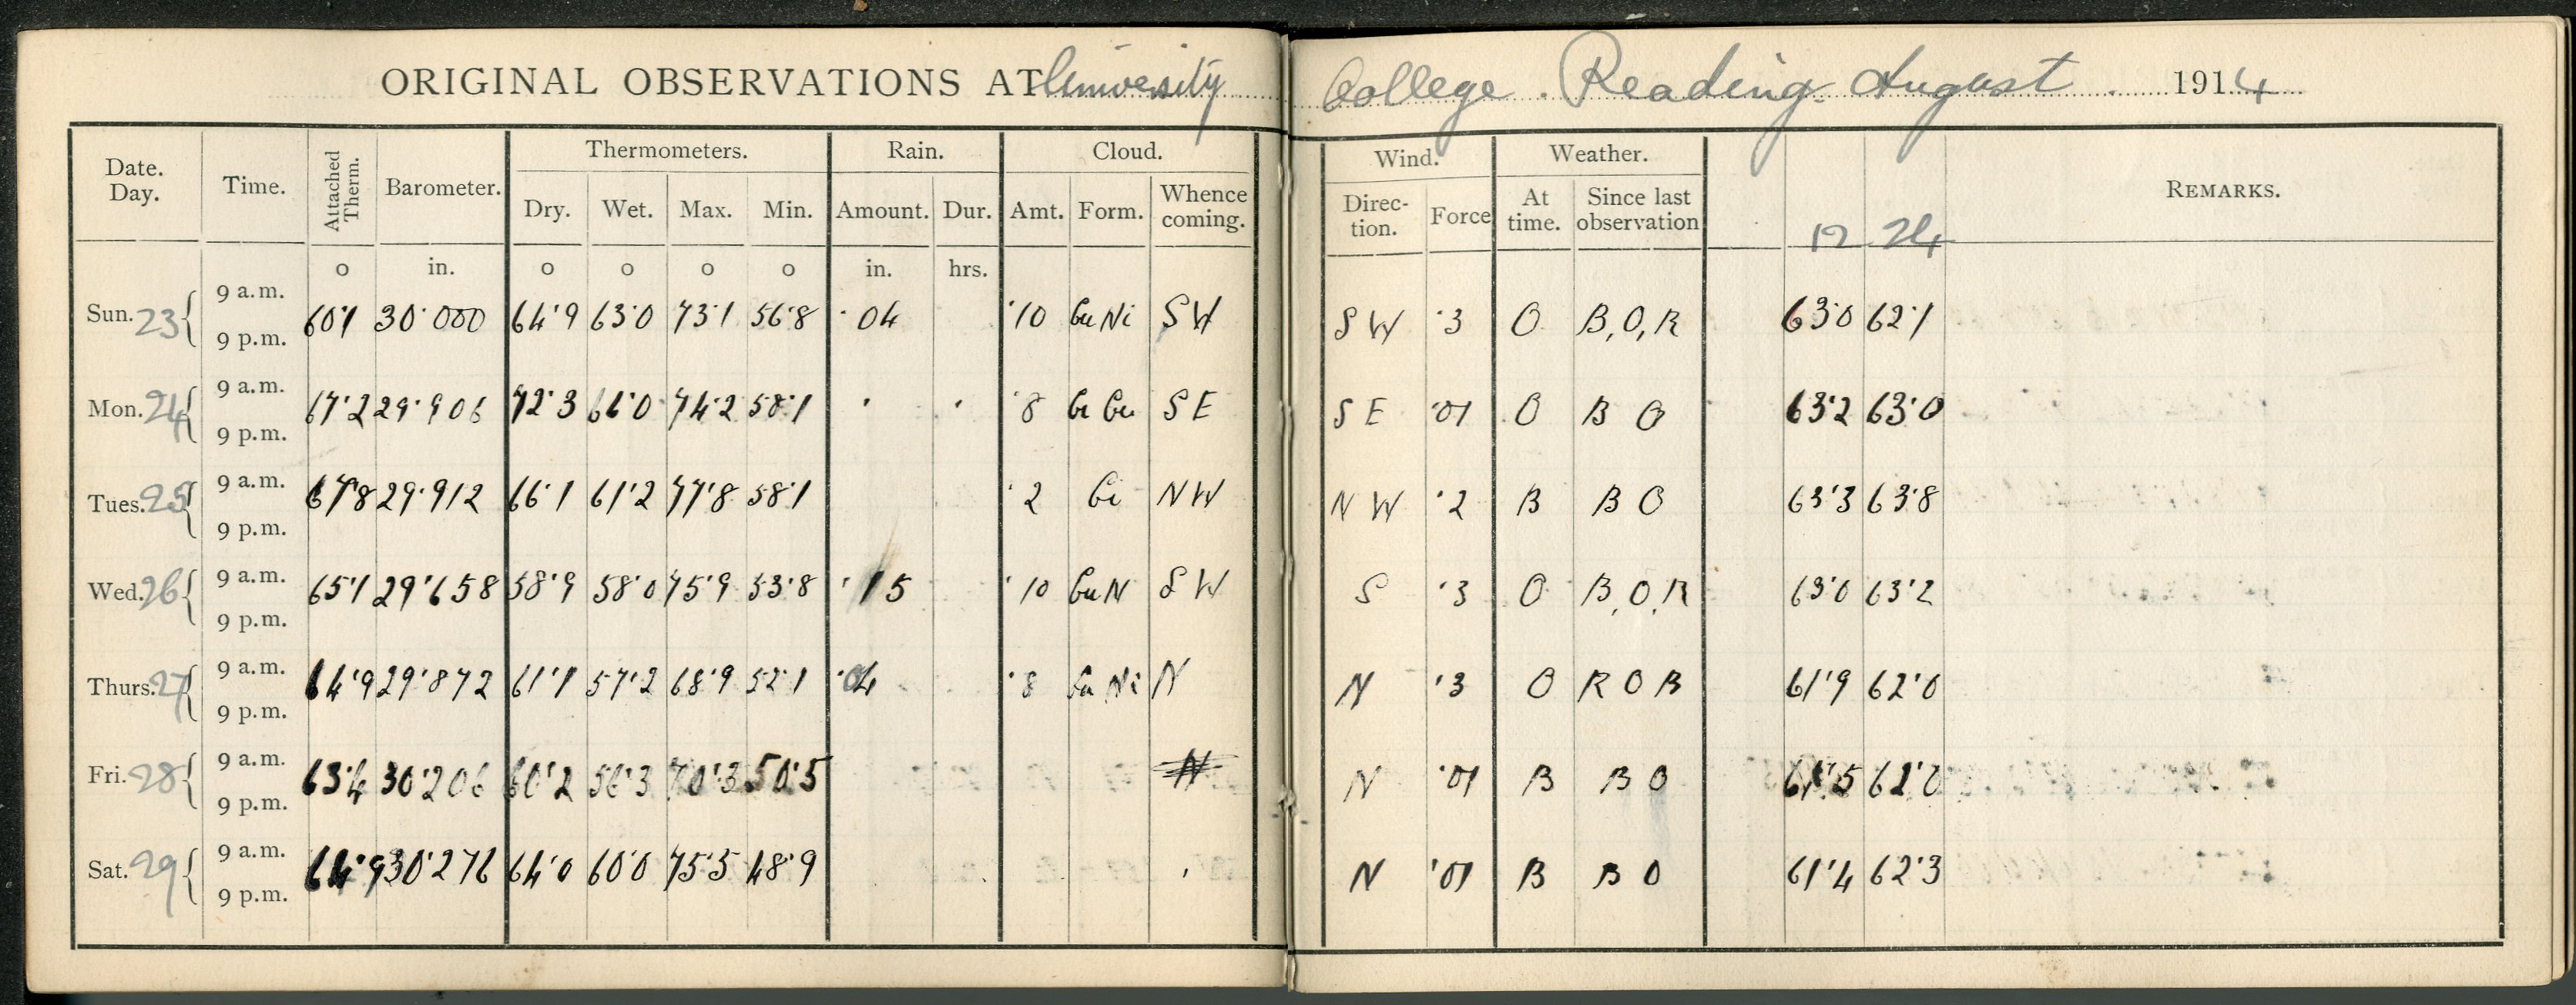 ORIGINAL OBSERVATIONS AT University College. Reading. August 1914
Date. Day. Time. Attached Therm. Barometer. Thermometers. Rain. Cloud. Wind. Weather. REMARKS.
Dry. Wet. Max. Min. Amount. Dur. Amt. Form. Whence coming. Direc- tion. Force At time. Since last observation 12 24
o in. o o o o in. hrs.
Sun. 23 9 a.m. 9 p.m. 60·1 30·000 64·9 63·0 73·1 56·8 ·04 ·10 Cu Ni SW SW ·3 O B,O,R 63·0 62·1
Mon. 24 9 a.m. 9 p.m. 67·2 29·906 72·3 66·0 74·2 58·1 ·8 Ci Cu SE SE ·01 O B O 63·2 63·0
Tues. 25 9 a.m. 9 p.m. 67·8 29·912 66·1 61·2 77·8 58·1 ·2 Ci NW NW ·2 B B O 63·3 63·8
Wed. 26 9 a.m. 9 p.m. 65·1 29·658 58·9 58·0 75·9 53·8 ·15 ·10 Cu N SW S ·3 O B,O,R 63·0 63·2
Thurs. 27 9 a.m. 9 p.m. 64·9 29·872 61·1 57·2 68·9 52·1 ·04 ·8 Cu Ni N N ·3 O R O B 61·9 62·0
Fri. 28 9 a.m. 9 p.m. 63·4 30·206 60·2 56·3 70·3 50·5 N N ·01 B B O 61·5 62·0
Sat. 29 9 a.m. 9 p.m. 64·9 30·276 64·0 60·0 75·5 48·9 N ·01 B B O 61·4 62·3